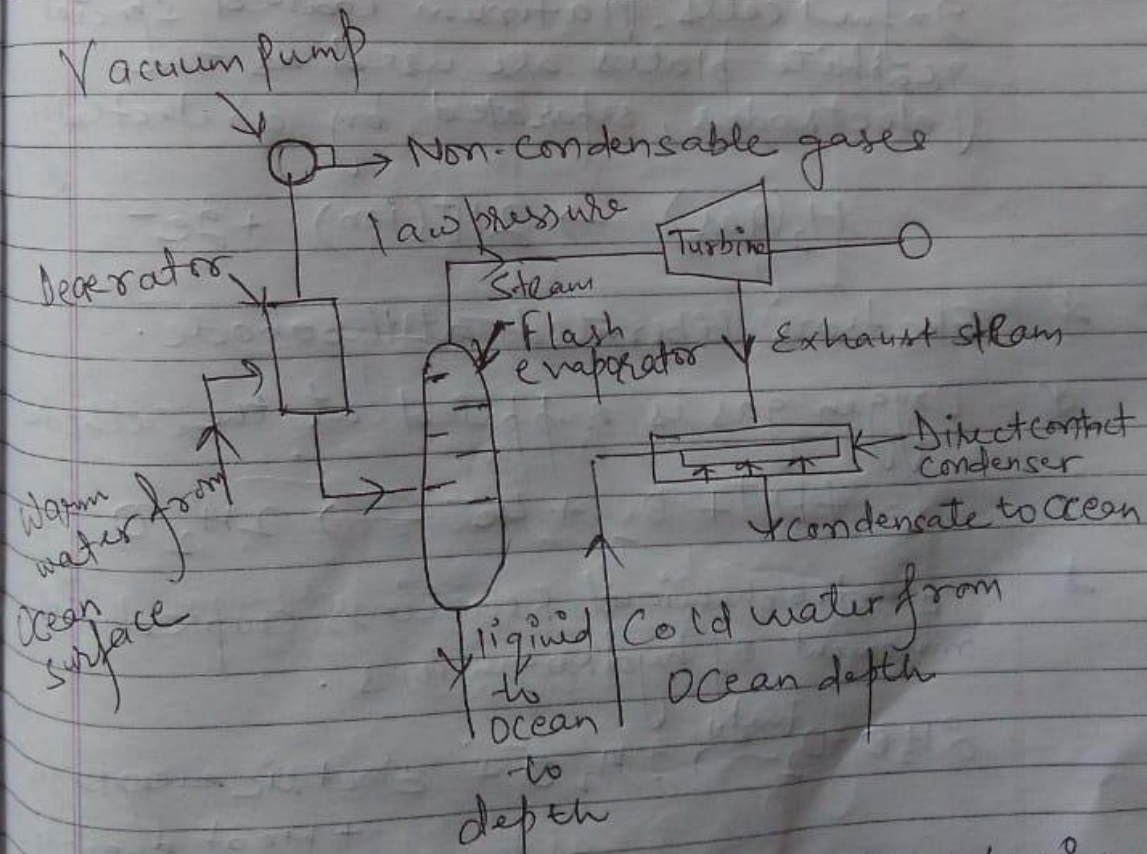 Vacuum Pump
Non-condensable gases
law pressure
Steam
Turbine
Degerator
Flash
evaporator
Exhaust steam
Direct contact
condenser
condensate to ocean
Warm
water from
ocean
surface
liqiuid
to
ocean
to
depth
Cold water from
ocean depth